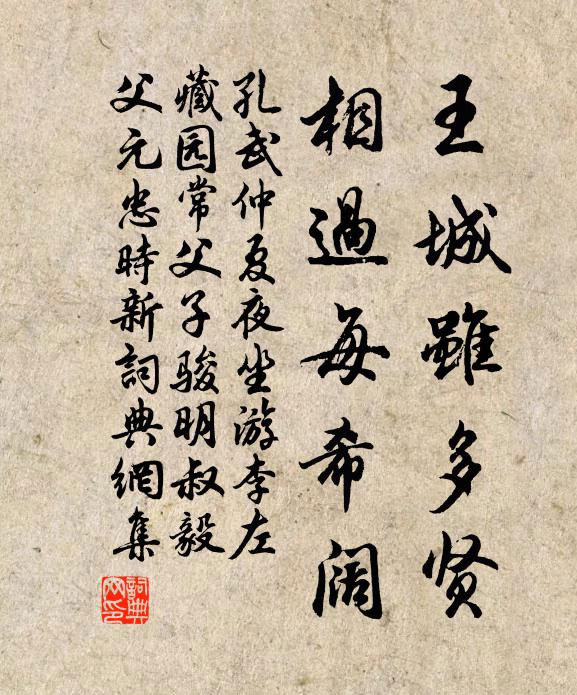 王城雖多贤
相過每希阔
孔武仲夏夜坐游李左
藏园常父子骏明叔毅
父元忠時新詞典網集
詞典网印